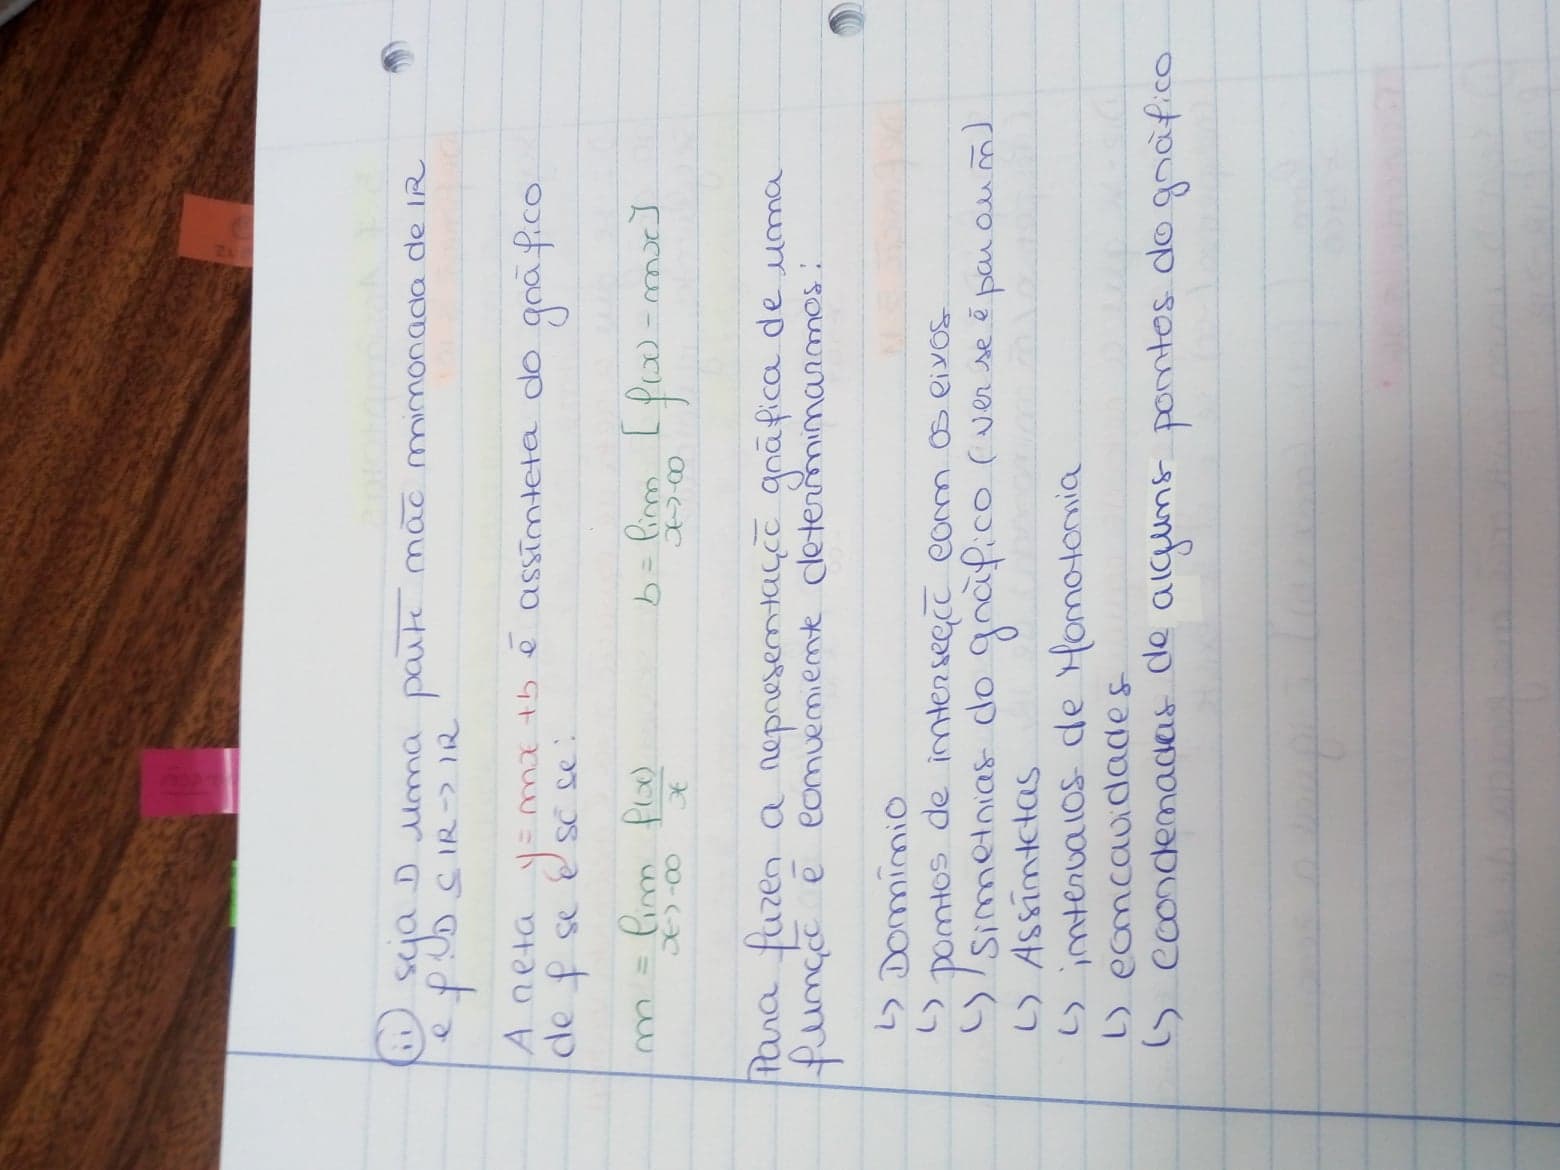 ii) seja D uma parte não minorada de IR
e f: D ⊆ IR → IR
A reta y = mx + b é assíntota do gráfico
de f se e só se:
m = lim x→-∞ f(x)/x b = lim x→-∞ [f(x) - mx]
Para fazer a representação gráfica de uma
função é conveniente determinarmos:
↳ Domínio
↳ pontos de interseção com os eixos
↳ simetrias do gráfico (ver se é par ou ñ)
↳ Assíntotas
↳ intervalos de Monotonia
↳ concavidades
↳ coordenadas de alguns pontos do gráfico